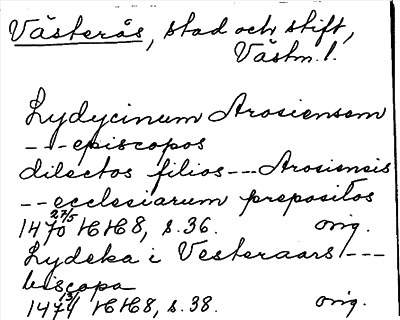 Västerås, stad och stift,
Västm. l.
Lydycinum Arosiensem
--- episcopos
dilectos filios --- Arosiensis
-- ecclesiarum prepositos
1470 27/5 HH8, s. 36. orig.
Lydeka i Vesteraars ---
biscopa
1471 HH8, s. 38. orig.